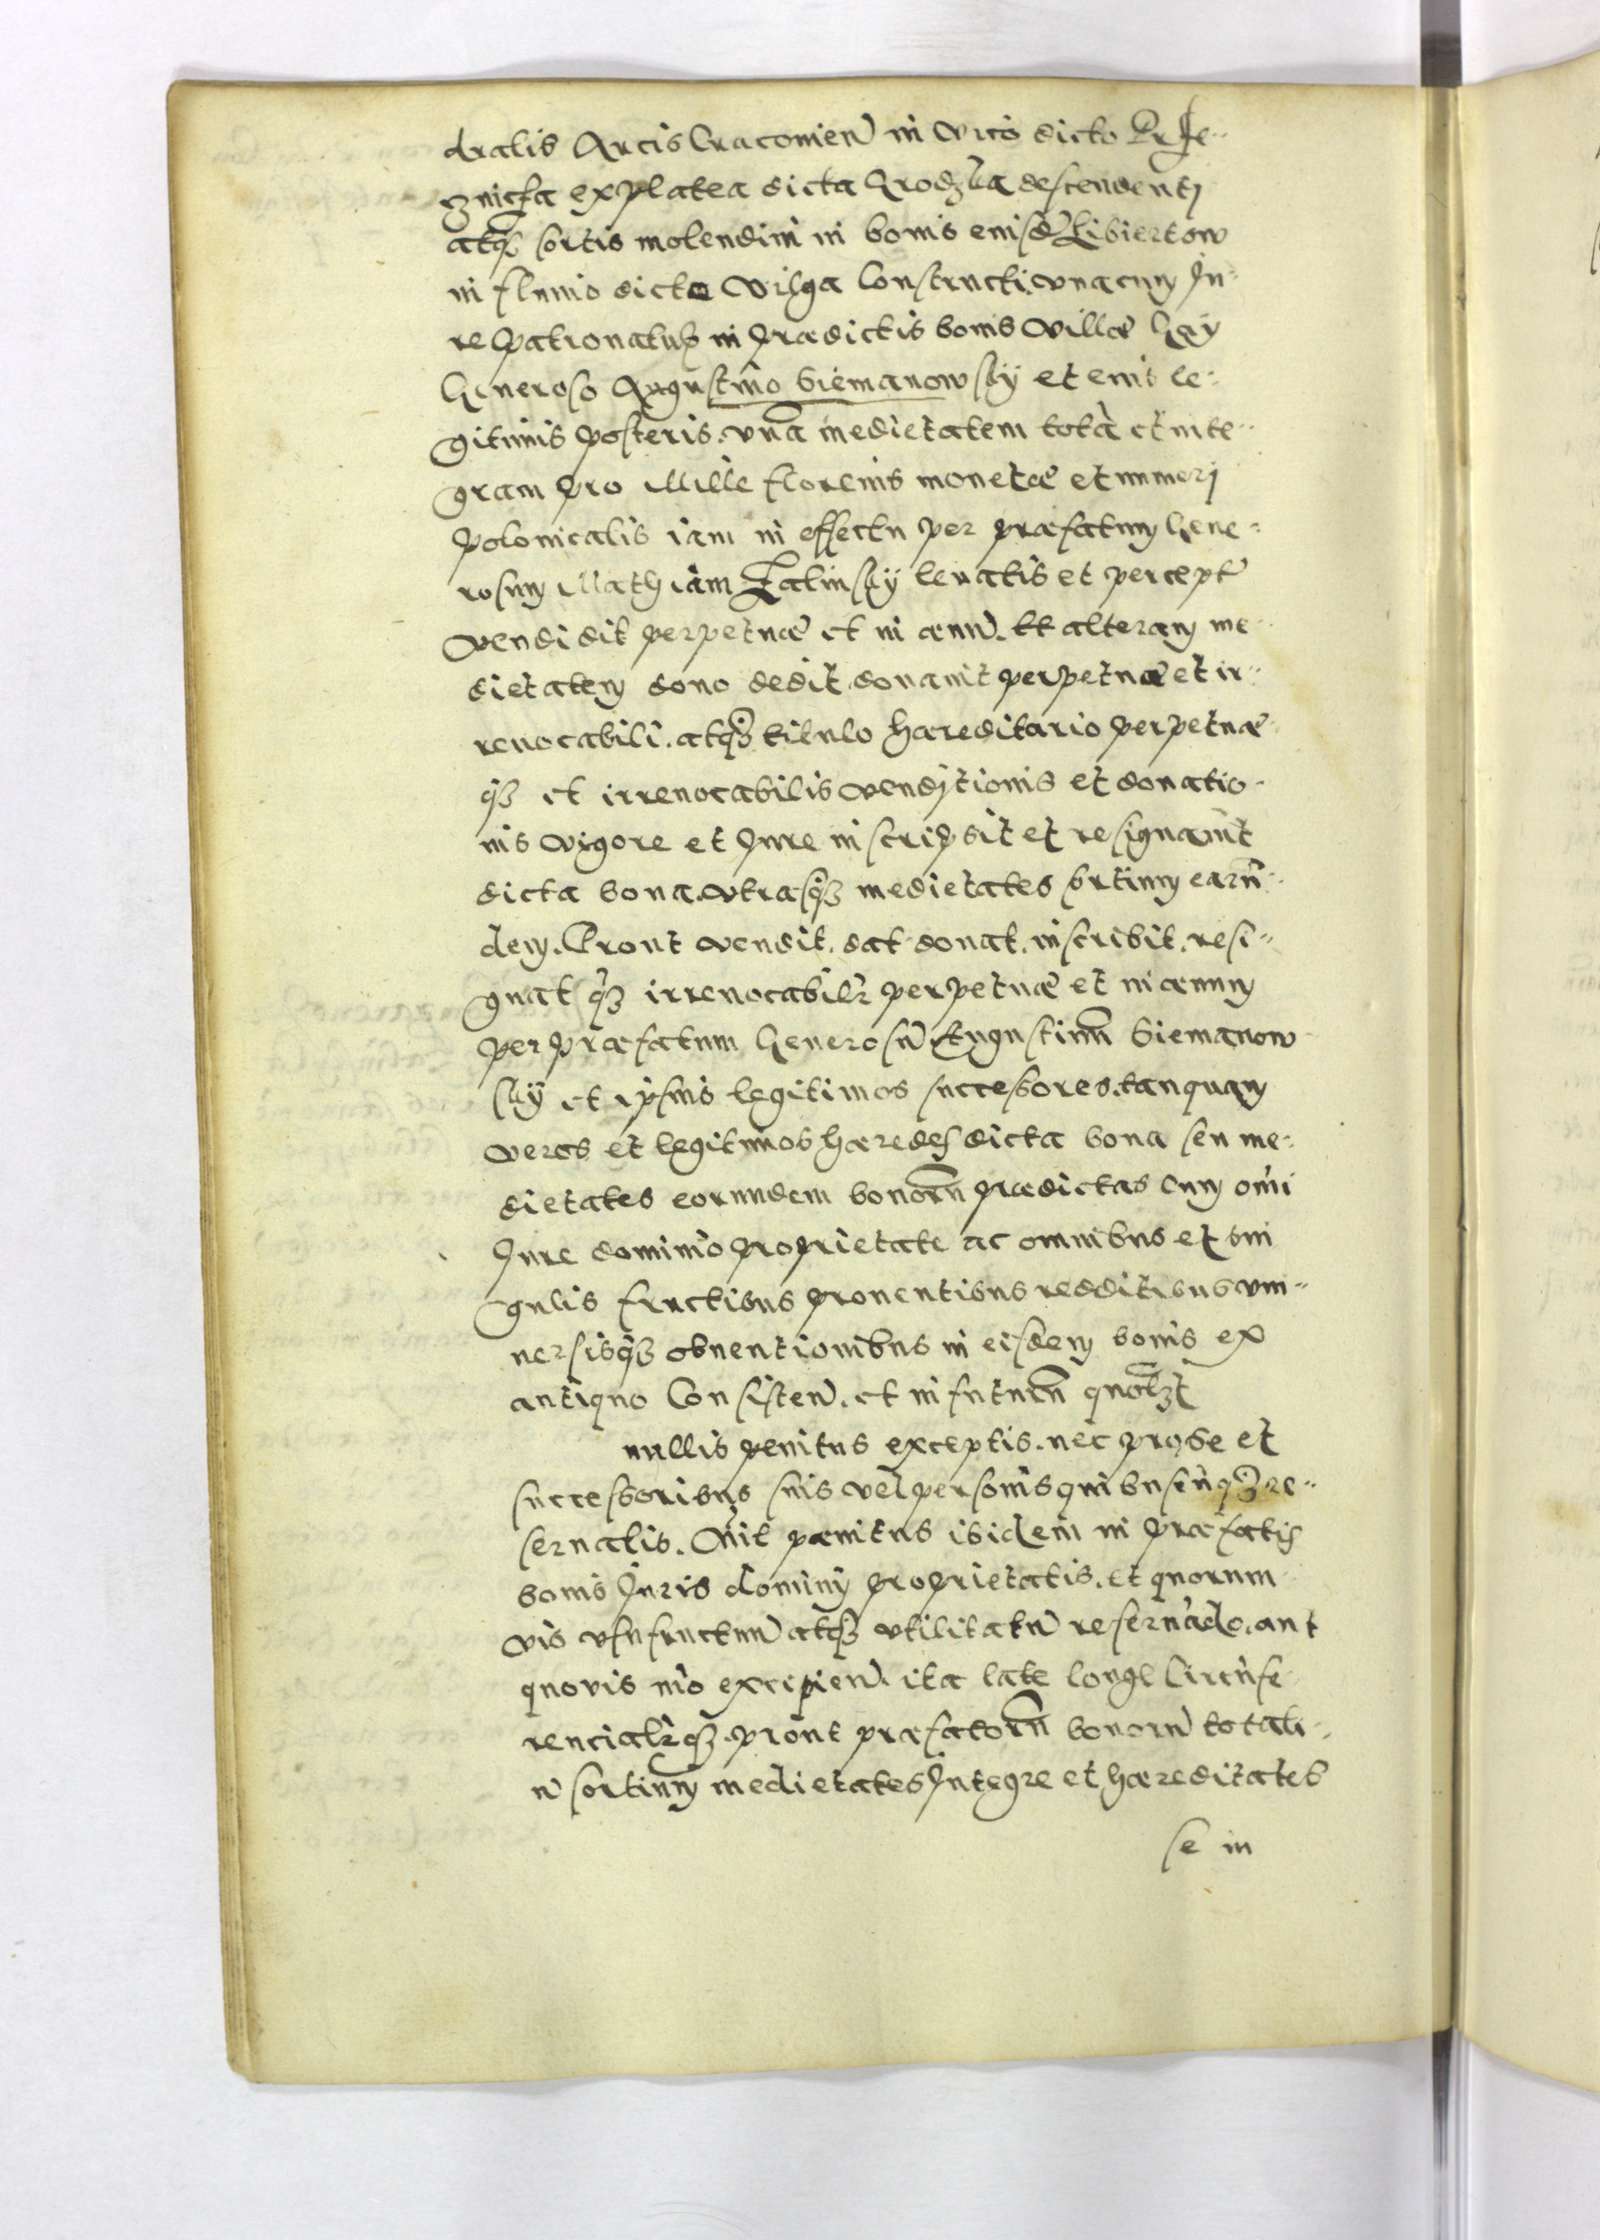 dralis Arcis Cracovien in vico dicto Prze-
cznicza ex platea dicta Grodzka descendenti
atq3 sortis molendini in bonis eiusd Libiertow
in fluvio dicto Vilga Constructi. vnacum Ju-
re Patronatus in prædictis bonis villæ Gay
Generoso Augustino Siemanowsky et eius le-
gitimis posteris. vna medietatem tota et inte-
gram pro Mille florenis monetæ et numeri
Polonicalis iam in effectu per præfatum Gene-
rosum Mathiam Zalinsky levatis et percept
vendidit perpetuæ et in æuu. Et alteram me-
dietatem dono dedit donauit perpetuæ et ir-
reuocabili. atq3 titulo hæreditario perpetuæ
q3 et irreuocabilis venditionis et donatio-
nis vigore et Jure inscripsit et resignauit
dicta bona. vtrasq3 medietates sortium earun-
dem. Prout vendit. dat donat. inscribit. resi-
gnat q3 irreuocabilr perpetuæ et in æuum
per præfatum Generosu Augustinu Siemanow-
sky et ipsius legitimos successores. tanquam
veros et legitimos hæredes dicta bona seu me-
dietates eorundem bonoru prædictas Cum omi
Jure dominio proprietate ac omnibus et sin
gulis fructibus prouentibus redditibus vni-
uersisq3 obuentionibus in eisdem bonis ex
antiquo Consisten. et in futuru quolzt
nullis penitus exceptis. nec pro se et
successoribus suis vel personis quibusuq3 re-
seruatis. Nil pænitus ibidem in præfatis
bonis Juris dominij proprietatis. et quorum
vis vsufructuu atq3 vtilitatu reseruado. aut
quovis mo excipien. ita late longe Circufe
rencialrq3. prout præfatoru bonoru totali-
u sortium medietates Integre et hæreditates
se in